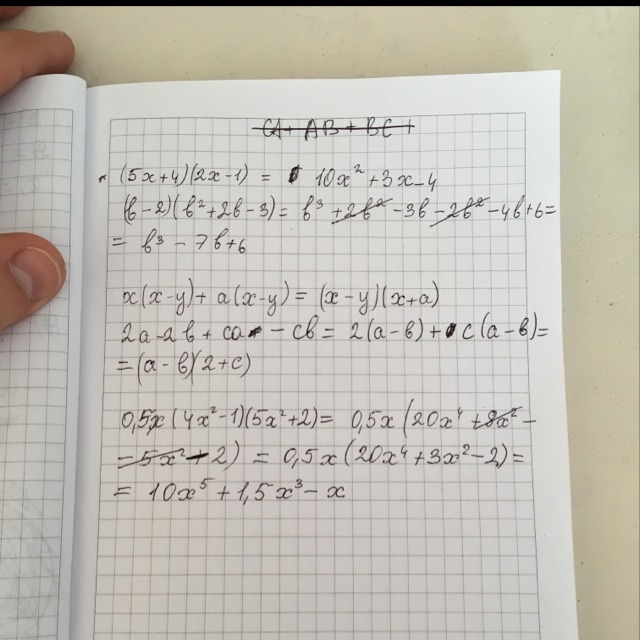 CA + AB + BC +
(5x+4)(2x-1) = 10x² + 3x - 4
(b-2)(b²+2b-3) = b³ + 2b² - 3b - 2b² - 4b + 6 =
= b³ - 7b + 6
x(x-y) + a(x-y) = (x-y)(x+a)
2a - 2b + ca - cb = 2(a-b) + c(a-b) =
= (a-b)(2+c)
0,5x(4x²-1)(5x²+2) = 0,5x(20x⁴ + 8x² -
- 5x² + 2) = 0,5x(20x⁴ + 3x² - 2) =
= 10x⁵ + 1,5x³ - x